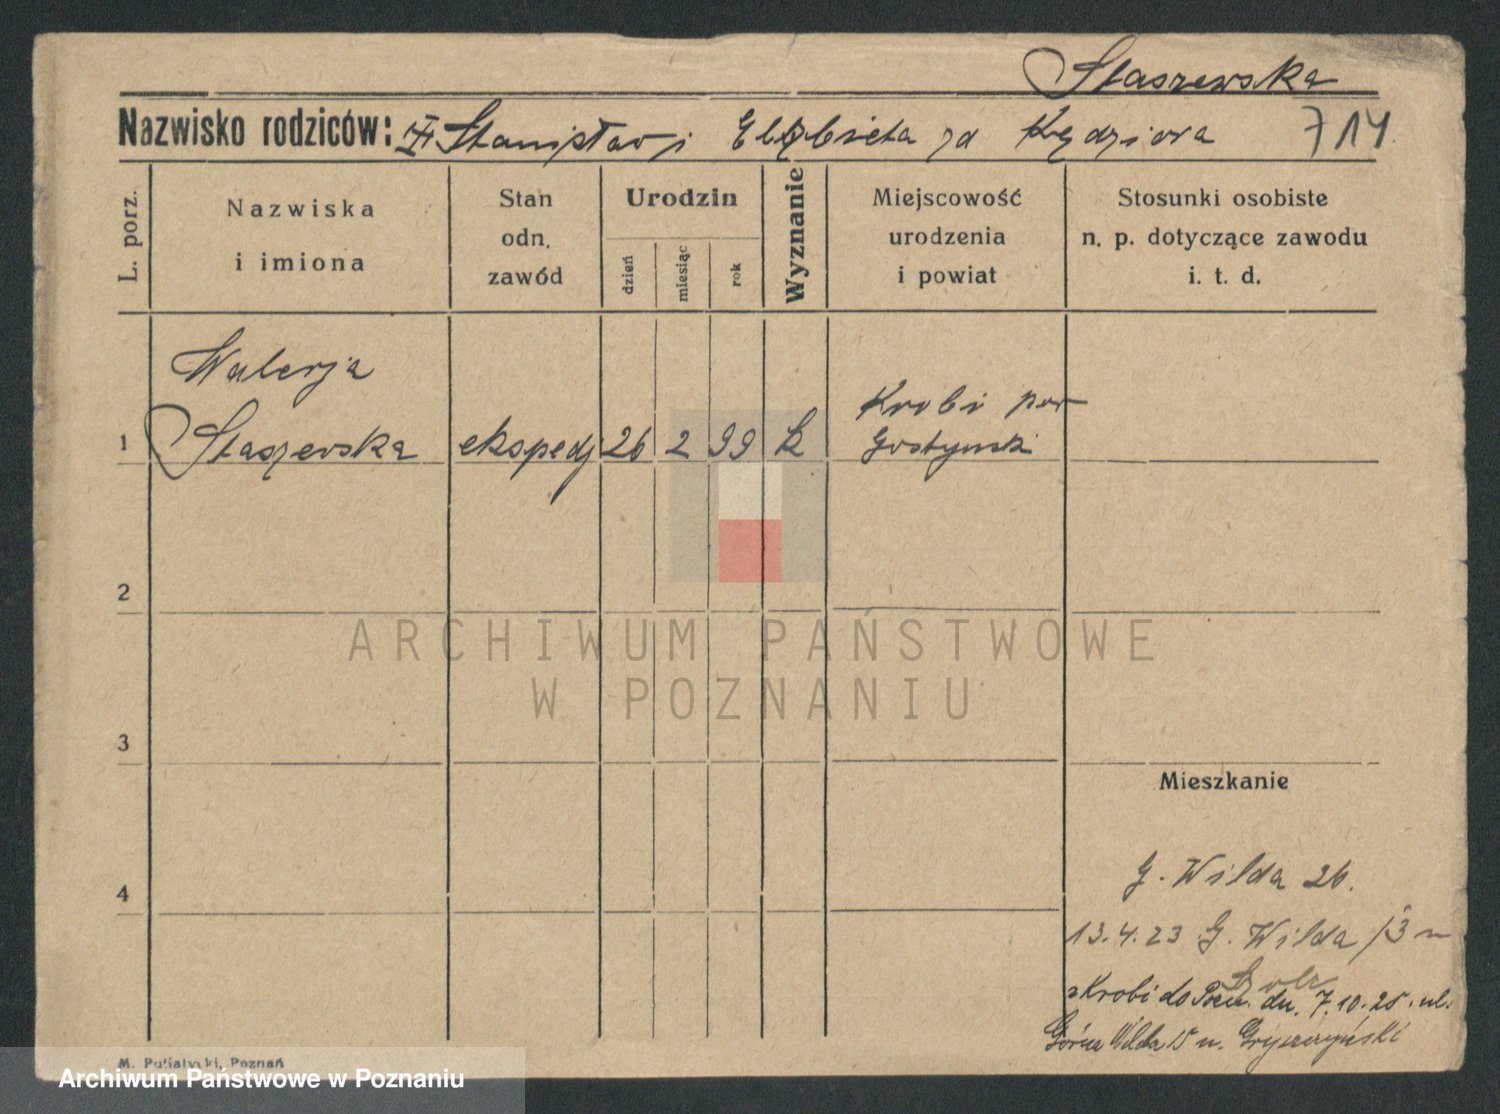 Staszewska
Nazwisko rodziców: Stanisław i Elżbieta zd Kędziora 714
L. porz.
Nazwiska
i imiona
Stan
odn.
zawód
Urodzin
dzień
miesiąc
rok
Wyznanie
Miejscowość
urodzenia
i powiat
Stosunki osobiste
n. p. dotyczące zawodu
i. t. d.
Walerja
1 Staszewska ekspedj 26 2 99 k
Krobi pow
Gostyński
2
ARCHIWUM PAŃSTWOWE
W POZNANIU
3
Mieszkanie
4
G. Wilda 26.
13.4.23 G. Wilda 13 u
z Krobi do Pozn. dn. 7.10.25. ul.
Górna Wilda 15 u.
M. Putiatycki, Poznań
Archiwum Państwowe w Poznaniu